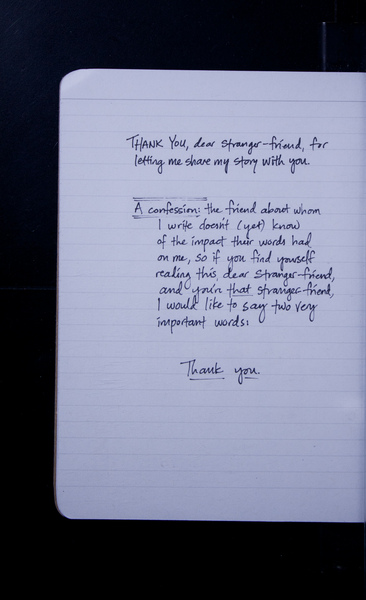 THANK YOU, dear stranger-friend, for
letting me share my story with you.
A confession: the friend about whom
I write doesn't (yet) know
of the impact their words had
on me, so if you find yourself
reading this, dear stranger-friend,
and you're that stranger-friend,
I would like to say two very
important words:
Thank you.